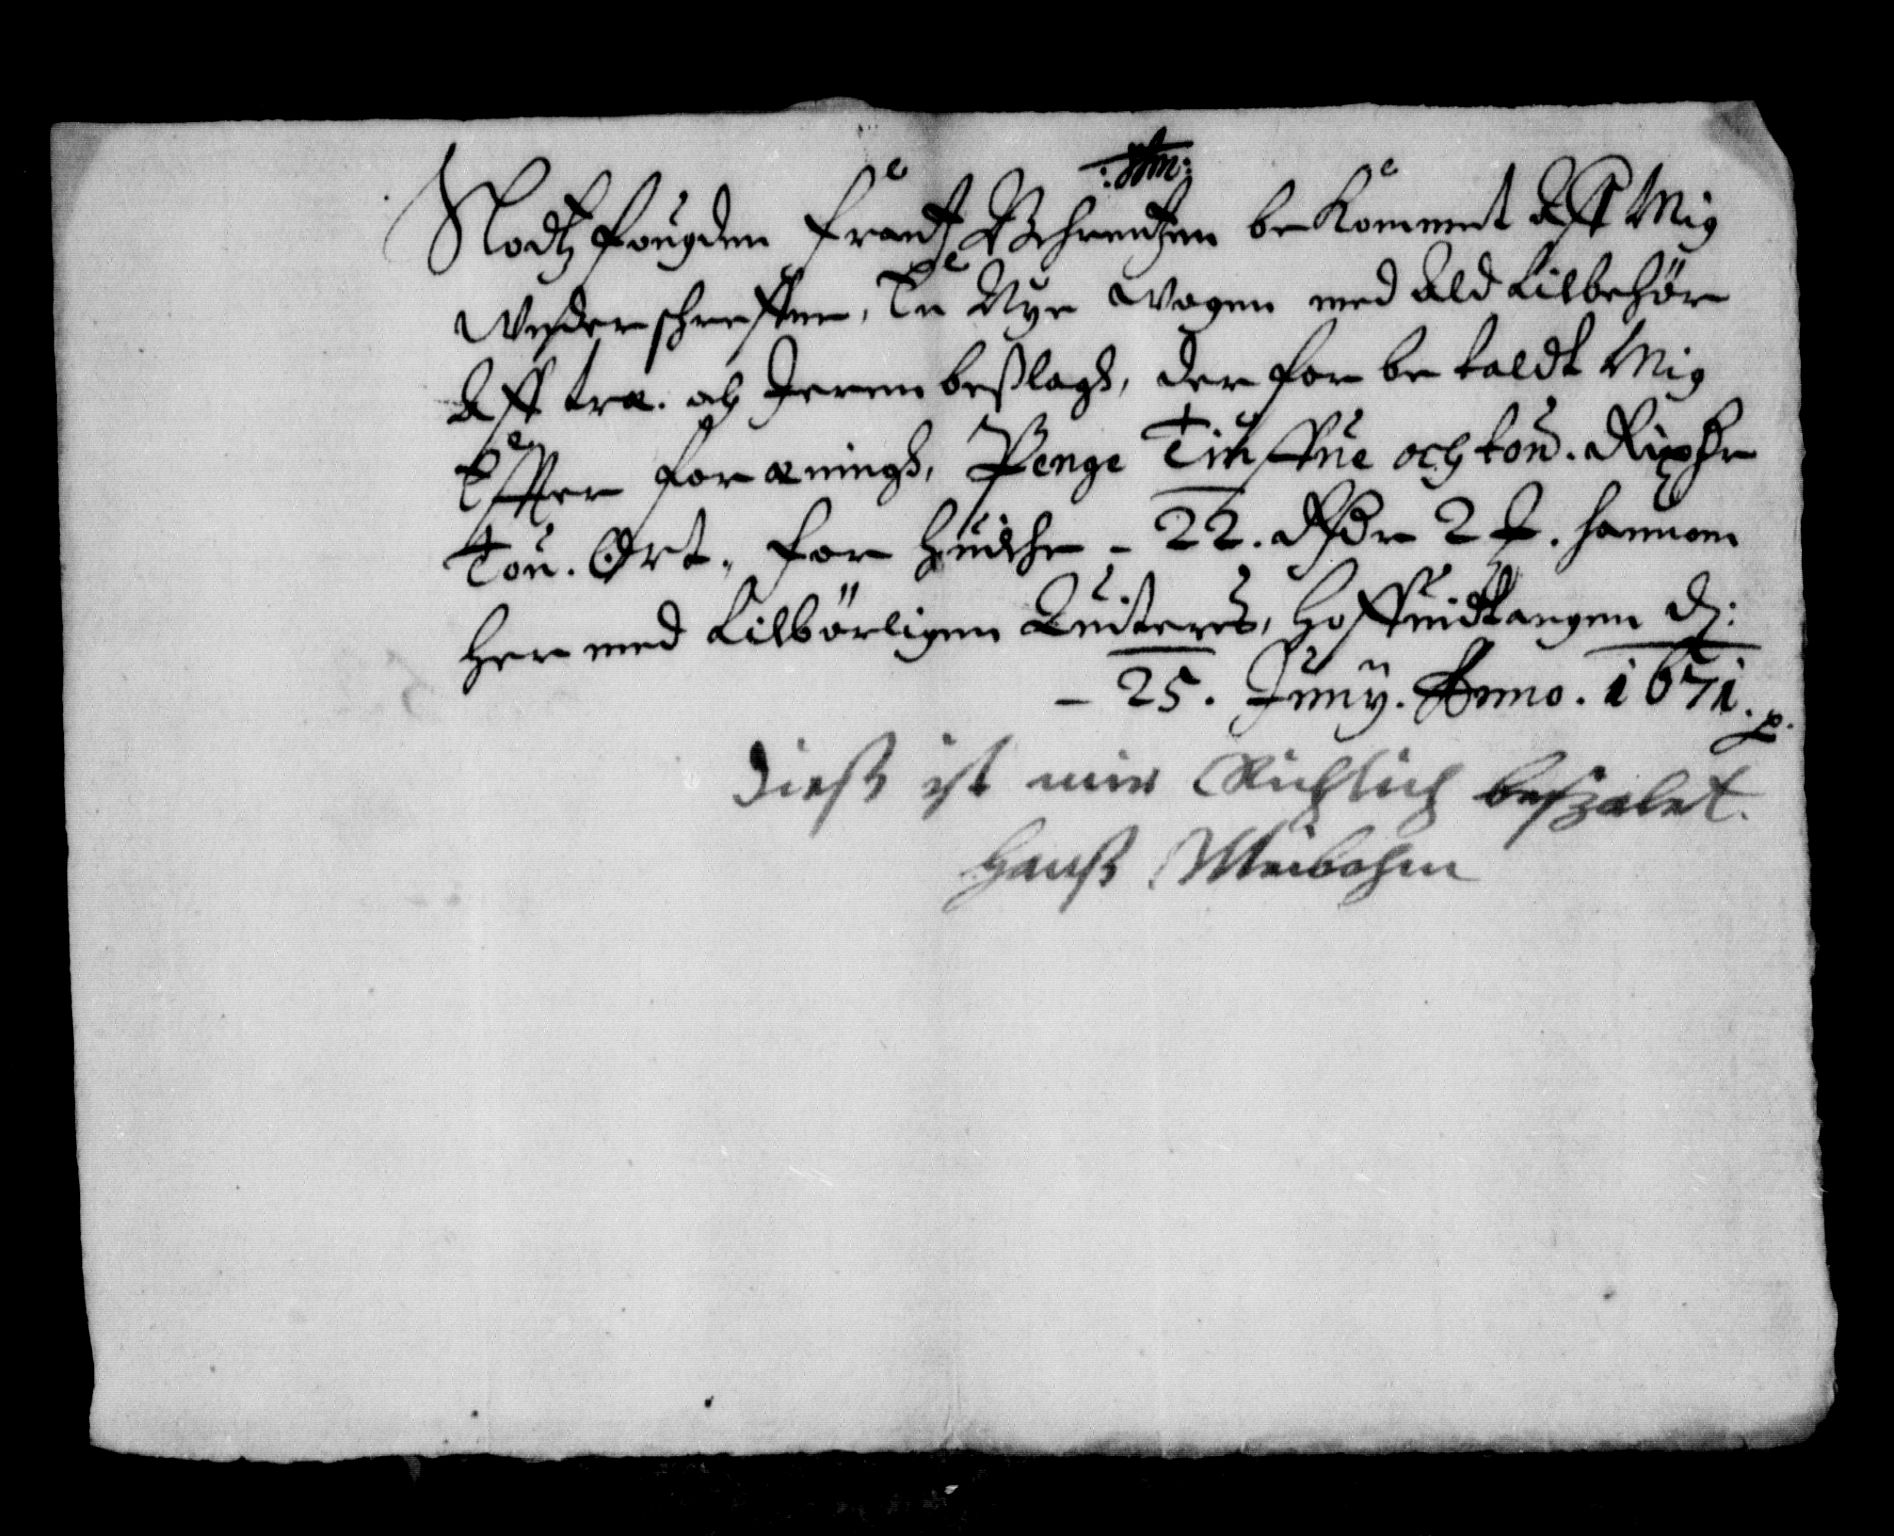 :Hm:
Slodtz fougden Frandtz Behrentzen be Kommet Aff Mig
Wnderschreffuen, En Nye Wogen med Ald Tilbehör
Aff træ. och Jernn beßlagh, der for be taldt Mig
Effter foræningh, Penge Tiuffue och tou. Rixdr
Tou. Ort, for huilche - 22. Rdr 2 J. hannom
Her med Tilbörligen Quiteres, Hoffuidtangen d:
- 25. Junij. Anno. 1671.
Dieß ist mir Richtich beszalet.
Hanß Meibohm